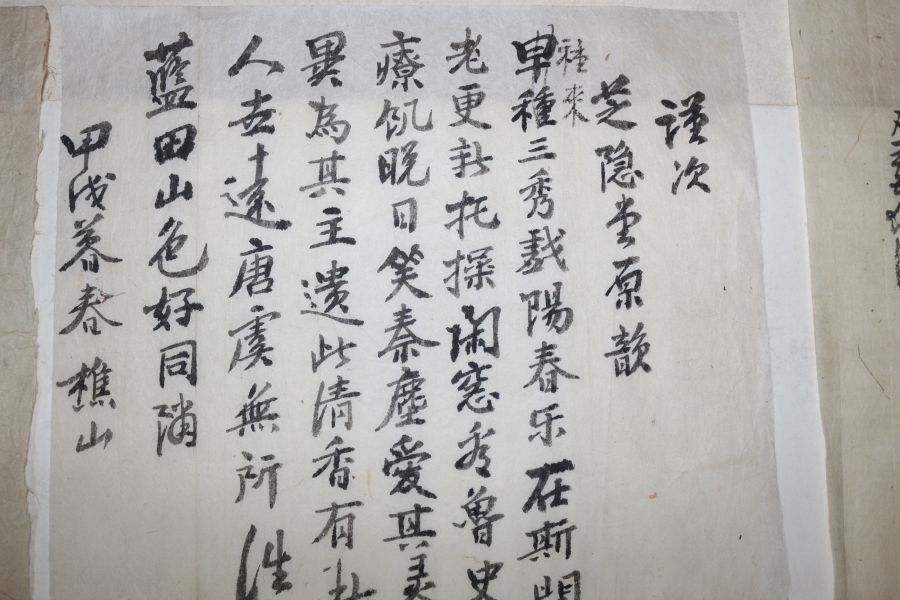 謹次
芝隐堂原韻
種来
早種三秀戲陽春乐在斯
老更託操闲窓秀魯史
療飢晚日笑秦塵愛其
異為其主遺此清香有
人去遠唐虞無所
藍田山色好同
甲戌暮春樵山